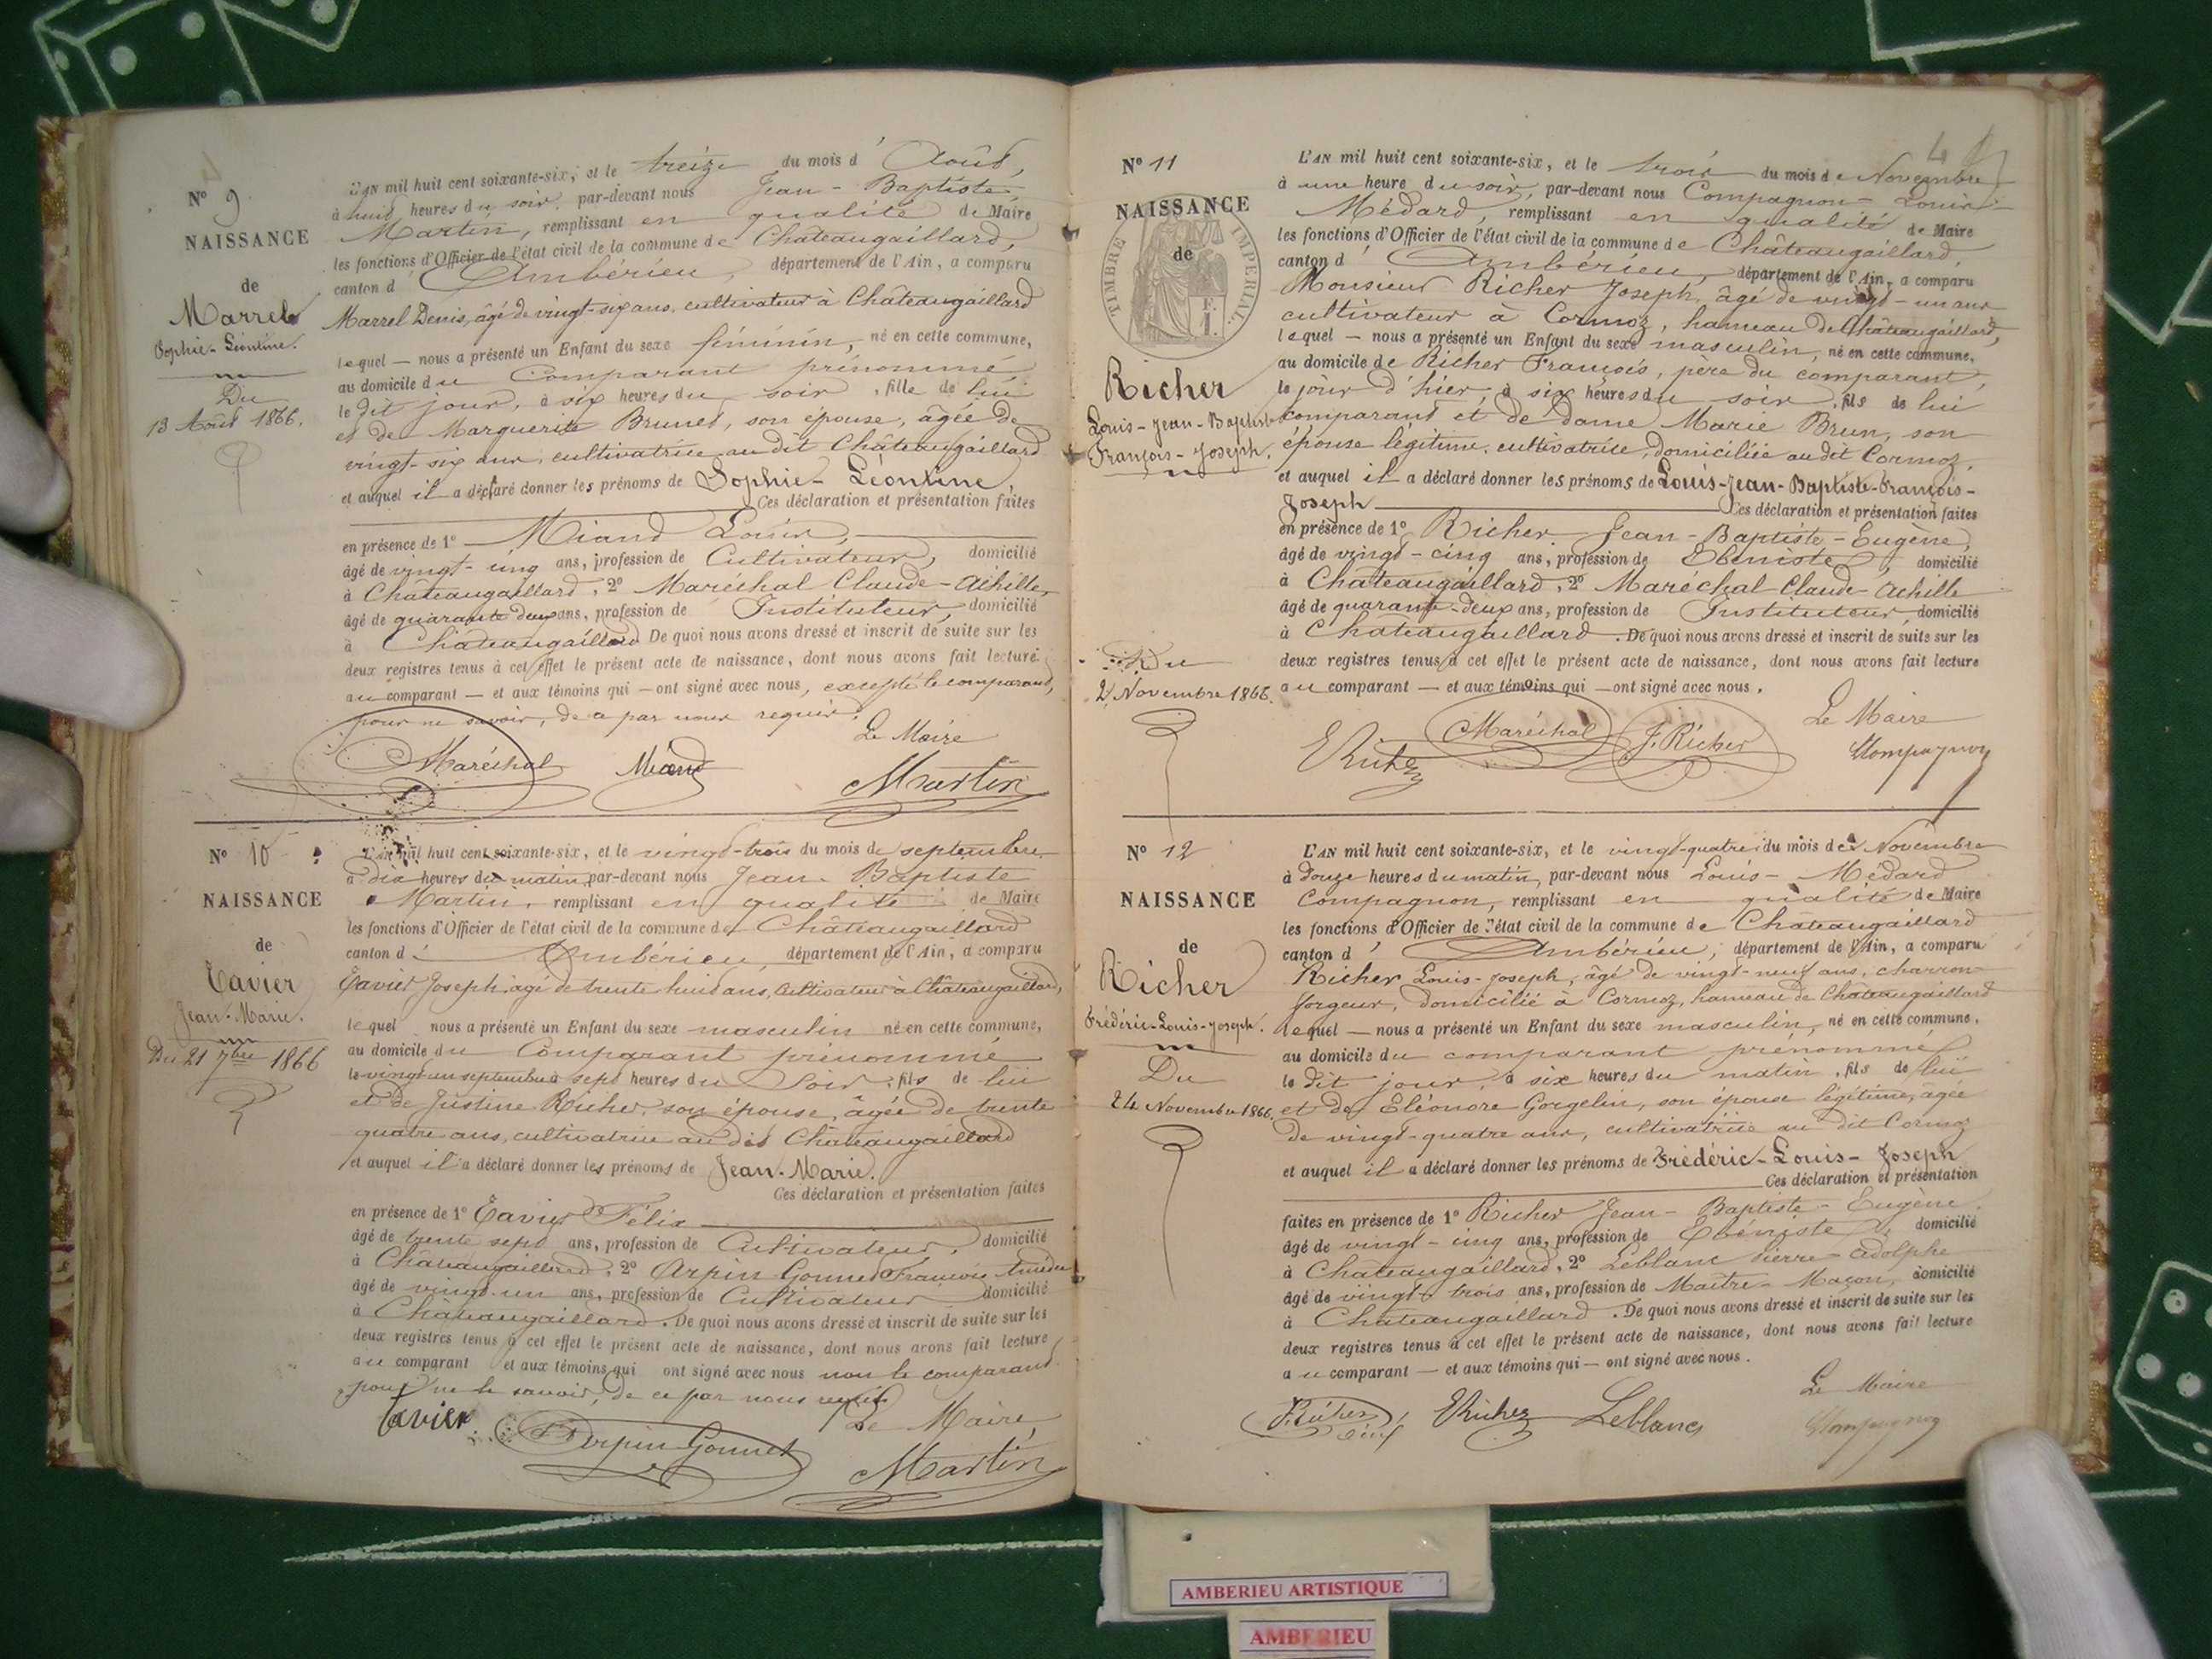 N° 9
NAISSANCE
de
Marrel
Sophie-Léontine.
Du
13 Août 1866.
L'AN mil huit cent soixante-six, et le treize du mois d'Août,
à huit heures du soir, par-devant nous Jean-Baptiste
Martin, remplissant en qualité de Maire
les fonctions d'Officier de l'état civil de la commune de Châteaugaillard,
canton d'Ambérieu, département de l'Ain, a comparu
Marrel Denis, âgé de vingt-six ans, cultivateur à Châteaugaillard
lequel — nous a présenté un Enfant du sexe féminin, né en cette commune,
au domicile du comparant prénommé
le dit jour, à six heures du soir, fille de lui
et de Marguerite Brunet, son épouse, âgée de
vingt-six ans, cultivatrice au dit Châteaugaillard
et auquel il a déclaré donner les prénoms de Sophie-Léontine,
Ces déclaration et présentation faites
en présence de 1° Miand Louis,
âgé de vingt-cinq ans, profession de Cultivateur, domicilié
à Châteaugaillard, 2° Maréchal Claude-Achille,
âgé de quarante deux ans, profession de Instituteur, domicilié
à Châteaugaillard De quoi nous avons dressé et inscrit de suite sur les
deux registres tenus à cet effet le présent acte de naissance, dont nous avons fait lecture
au comparant — et aux témoins qui — ont signé avec nous, excepté le comparant,
pour ne savoir, de ce par nous requis.
Le Maire
Maréchal Miand Martin
N° 10
NAISSANCE
de
Tavier
Jean-Marie.
Du 21 7bre 1866
L'AN mil huit cent soixante-six, et le vingt-trois du mois de septembre
à dix heures du matin, par-devant nous Jean-Baptiste
Martin, remplissant en qualité de Maire
les fonctions d'Officier de l'état civil de la commune de Châteaugaillard
canton d'Ambérieu, département de l'Ain, a comparu
Tavier Joseph, âgé de trente huit ans, Cultivateur à Châteaugaillard,
lequel nous a présenté un Enfant du sexe masculin né en cette commune,
au domicile du Comparant prénommé
le vingt un septembre à sept heures du Soir, fils de lui
et de Justine Richer, son épouse, âgée de trente
quatre ans, cultivatrice au dit Châteaugaillard
et auquel il a déclaré donner les prénoms de Jean-Marie.
Ces déclaration et présentation faites
en présence de 1° Tavier Félix
âgé de trente sept ans, profession de Cultivateur, domicilié
à Châteaugaillard, 2° Arpin Gonnet François Amédée
âgé de vingt-un ans, profession de Cultivateur domicilié
à Châteaugaillard. De quoi nous avons dressé et inscrit de suite sur les
deux registres tenus à cet effet le présent acte de naissance, dont nous avons fait lecture
au comparant et aux témoins qui ont signé avec nous non le comparant
pour ne le savoir, de ce par nous requis
Le Maire,
Tavier Arpin Gonnet Martin
N° 11
NAISSANCE
de
TIMBRE IMPERIAL
Richer
Louis-Jean-Baptiste
François-Joseph.
Du
2 Novembre 1866.
L'AN mil huit cent soixante-six, et le trois du mois de Novembre
à une heure du soir, par-devant nous Compagnon Louis
Médard, remplissant en qualité de Maire
les fonctions d'Officier de l'état civil de la commune de Châteaugaillard,
canton d'Ambérieu, département de l'Ain, a comparu
Monsieur Richer Joseph, âgé de vingt-un ans
cultivateur à Cormoz, hameau de Châteaugaillard,
lequel — nous a présenté un Enfant du sexe masculin, né en cette commune,
au domicile de Richer François, père du comparant,
le jour d'hier, à six heures du soir, fils de lui
comparant et de dame Marie Brun, son
épouse légitime, cultivatrice, domiciliée au dit Cormoz,
et auquel il a déclaré donner les prénoms de Louis-Jean-Baptiste-François-
Joseph Ces déclaration et présentation faites
en présence de 1° Richer Jean-Baptiste-Eugène,
âgé de vingt-cinq ans, profession de Ebéniste, domicilié
à Châteaugaillard, 2° Maréchal Claude Achille
âgé de quarante-deux ans, profession de Instituteur, domicilié
à Châteaugaillard. De quoi nous avons dressé et inscrit de suite sur les
deux registres tenus à cet effet le présent acte de naissance, dont nous avons fait lecture
au comparant — et aux témoins qui — ont signé avec nous.
Le Maire
E Richer Maréchal J. Richer Compagnon
N° 12
NAISSANCE
de
Richer
Frédéric-Louis-Joseph.
Du
24 Novembre 1866.
L'AN mil huit cent soixante-six, et le vingt-quatre du mois de Novembre
à douze heures du matin, par-devant nous Louis-Médard
Compagnon, remplissant en qualité de Maire
les fonctions d'Officier de l'état civil de la commune de Châteaugaillard
canton d'Ambérieu, département de l'Ain, a comparu
Richer Louis-Joseph, âgé de vingt-neuf ans, charron
forgeur, domicilié à Cormoz, hameau de Châteaugaillard
lequel — nous a présenté un Enfant du sexe masculin, né en cette commune,
au domicile du comparant prénommé
le dit jour, à six heures du matin, fils de lui
et de Eléonore Gorgelin, son épouse légitime, âgée
de vingt-quatre ans, cultivatrice au dit Cormoz
et auquel il a déclaré donner les prénoms de Frédéric-Louis-Joseph
Ces déclaration et présentation
faites en présence de 1° Richer Jean-Baptiste-Eugène,
âgé de vingt-cinq ans, profession de Ebéniste, domicilié
à Châteaugaillard, 2° Leblanc Pierre-Adolphe
âgé de vingt trois ans, profession de Maître-Maçon, domicilié
à Châteaugaillard. De quoi nous avons dressé et inscrit de suite sur les
deux registres tenus à cet effet le présent acte de naissance, dont nous avons fait lecture
au comparant — et aux témoins qui — ont signé avec nous.
Le Maire
Richer E Richer Leblanc Compagnon
AMBERIEU ARTISTIQUE
AMBERIEU